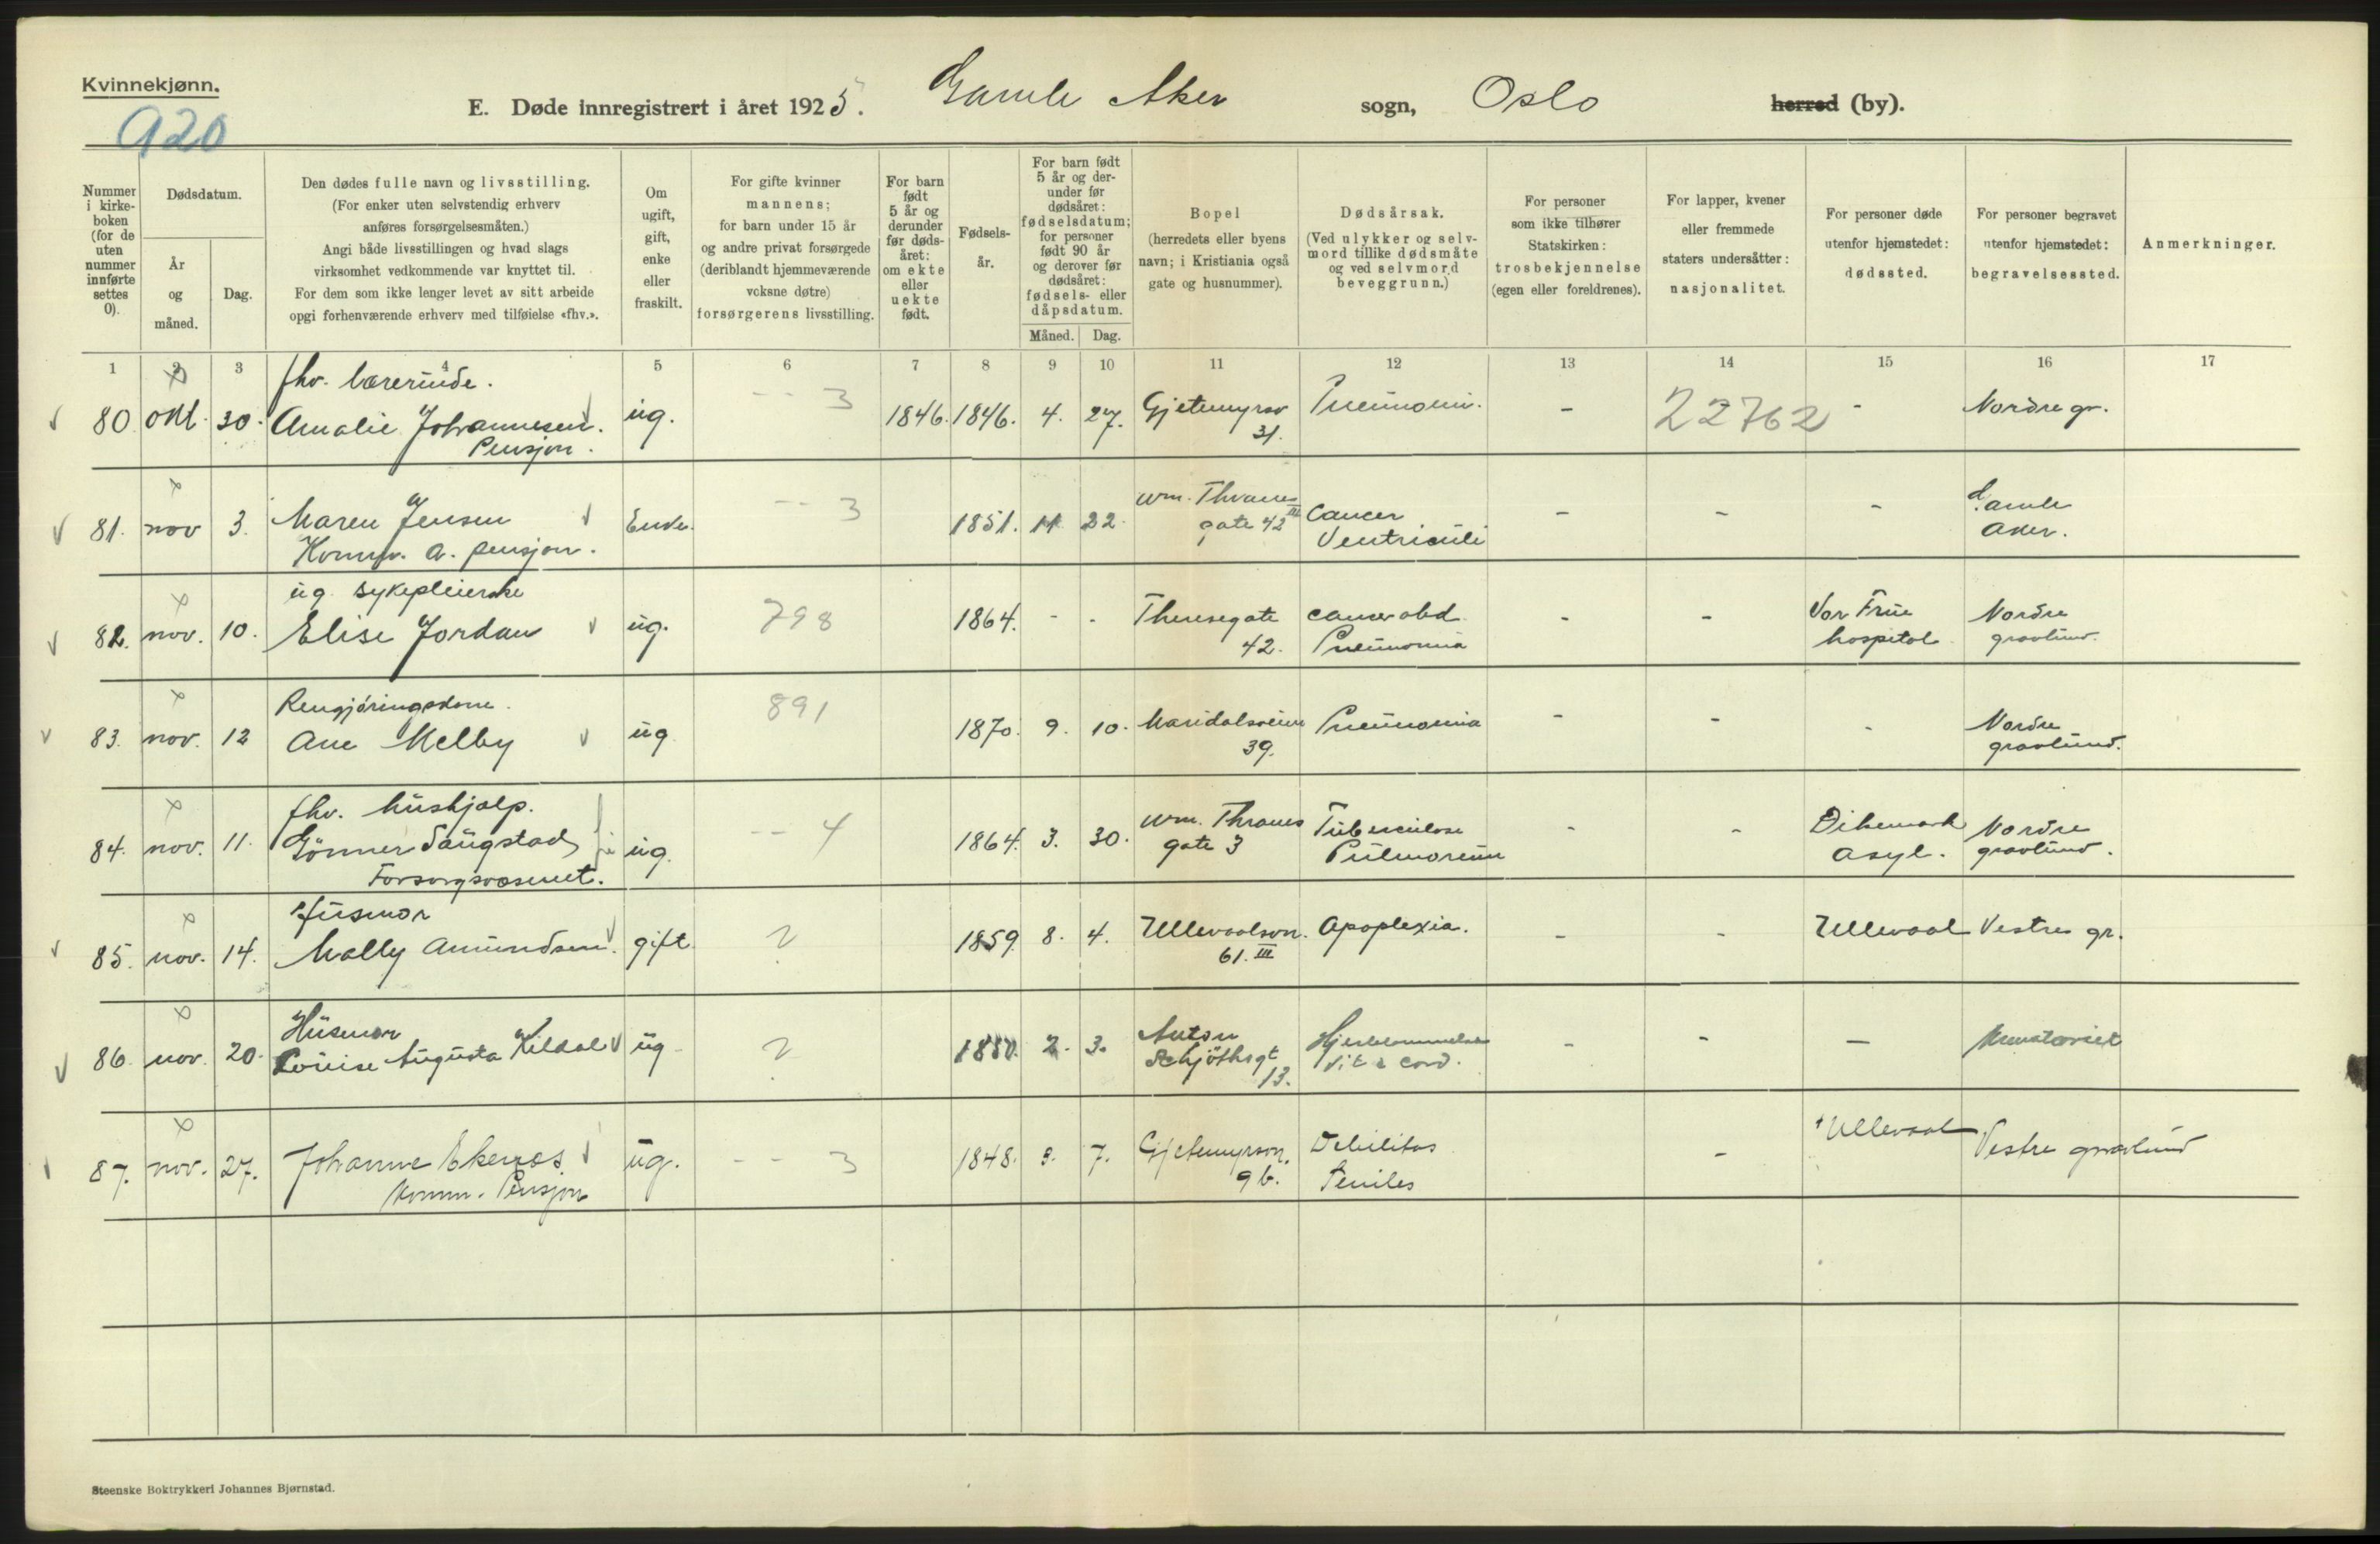 Kvinnekjønn.
920
E. Døde innregistrert i året 1925. Gamle Aker sogn, Oslo herred (by).
Nummer i kirkeboken (for de uten nummer innførte settes 0).
Dødsdatum.
År og måned.
Dag.
Den dødes fulle navn og livsstilling.
(For enker uten selvstendig erhverv
anføres forsørgelsesmåten.)
Angi både livsstillingen og hvad slags
virksomhet vedkommende var knyttet til.
For dem som ikke lenger levet av sitt arbeide
opgi forhenværende erhverv med tilføielse «fhv.».
Om ugift, gift, enke eller fraskilt.
For gifte kvinner
mannens;
for barn under 15 år
og andre privat forsørgede
(deriblandt hjemmeværende
voksne døtre)
forsørgerens livsstilling.
For barn født 5 år og derunder før dødsåret: om ekte eller uekte født.
Fødselsår.
For barn født
5 år og derunder før
dødsåret:
fødselsdatum;
for personer
født 90 år
og derover før
dødsåret:
fødsels- eller
dåpsdatum.
Måned. Dag.
Bopel
(herredets eller byens
navn; i Kristiania også
gate og husnummer).
Dødsårsak.
(Ved ulykker og selvmord tillike dødsmåte
og ved selvmord
beveggrunn.)
For personer
som ikke tilhører
Statskirken:
trosbekjennelse
(egen eller foreldrenes).
For lapper, kvener
eller fremmede
staters undersåtter:
nasjonalitet.
For personer døde
utenfor hjemstedet:
dødssted.
For personer begravet
utenfor hjemstedet:
begravelsessted.
Anmerkninger.
1 2 3 4 5 6 7 8 9 10 11 12 13 14 15 16 17
fhv. lærerinde.
80 okt. 30. Amalie Johannesen. ug. -- 3 1846. 1846. 4. 27. Gjetemyrsv Pneumoni. - 22762 - Nordre gr.
Pensjon. 31.
81. nov 3. Maren Jensen Enke. -- 3 1851. 11 22. Wm. Thranes Cancer - - - Gamle
Komm. a. pensjon. gate 42 III Ventriculi Aker.
ug. sykepleierske
82. nov. 10. Elise Jordan ug. 798 1864. - - Theresegate cancer abd. - - Vor Frue Nordre
42. Pneumonia hospital gravlund.
Rengjøringskone.
83. nov. 12 Ane Melby ug 891 1870. 9. 10. Maridalsveien Pneumonia - - - Nordre
39. gravlund.
fhv. hushjælp.
84. nov. 11. Gønner Saugstad ug. -- 4 1864. 3. 30. Wm. Thranes Tuberculose - - Dikemark Nordre
Forsorgsvæsenet. gate 3 Pulmonum asyl. gravlund.
Husmor
85. nov. 14. Mally Amundsen. gift ? 1859. 8. 4. Ullevaalsvn. Apoplexia. - - Ullevaal Vestre gr.
61. III
Husmor
86. nov. 20. Louise Augusta Kildal ug ? 1850. 2. 3. Anton - - -
Schjøthsgt Vit. cord.
13.
87. nov. 27. Johanne Ekernæs ug. -- 3 1848. 9. 7. Gjetemyrsvn. Debilitas - Ullevaal Vestre gravlund
Komm. Pensjon 9 b. Seniles
Steenske Boktrykkeri Johannes Bjørnstad.